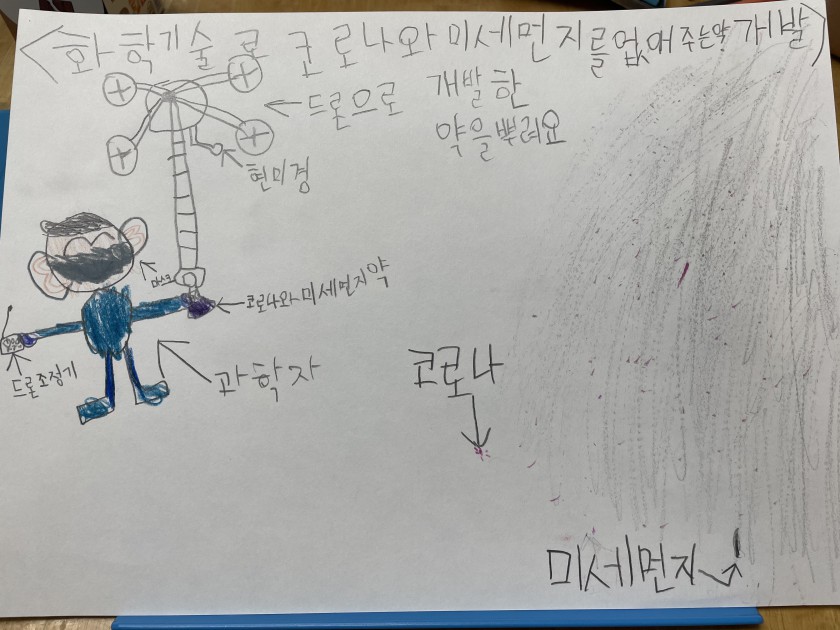 <화학기술로 코로나와 미세먼지를 없애주는약 개발>
드론으로 개발한
약을 뿌려요
현미경
마스크
코로나와 미세먼지약
드론조정기
과학자
코로나
미세먼지